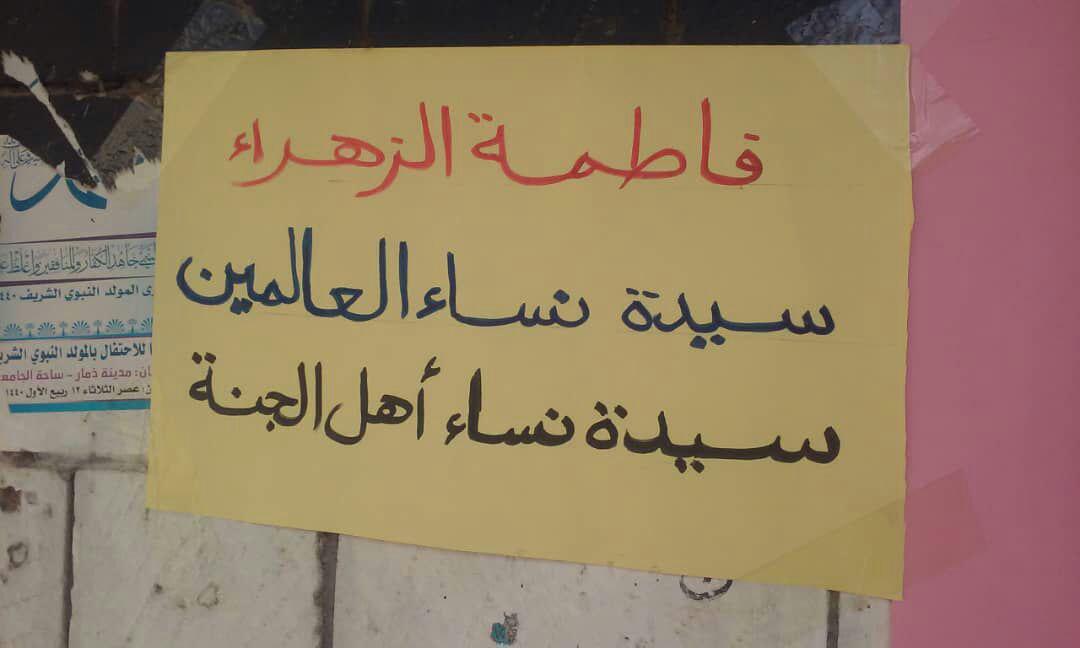 فاطمة الزهراء
سيدة نساء العالمين
سيدة نساء أهل الجنة
جاهد الكفار والمنافقين واغلظ
المولد النبوي الشريف ١٤٤٠
للاحتفال بالمولد النبوي
مدينة ذمار - ساحة
عصر الثلاثاء ١٢ ربيع الأول ١٤٤٠